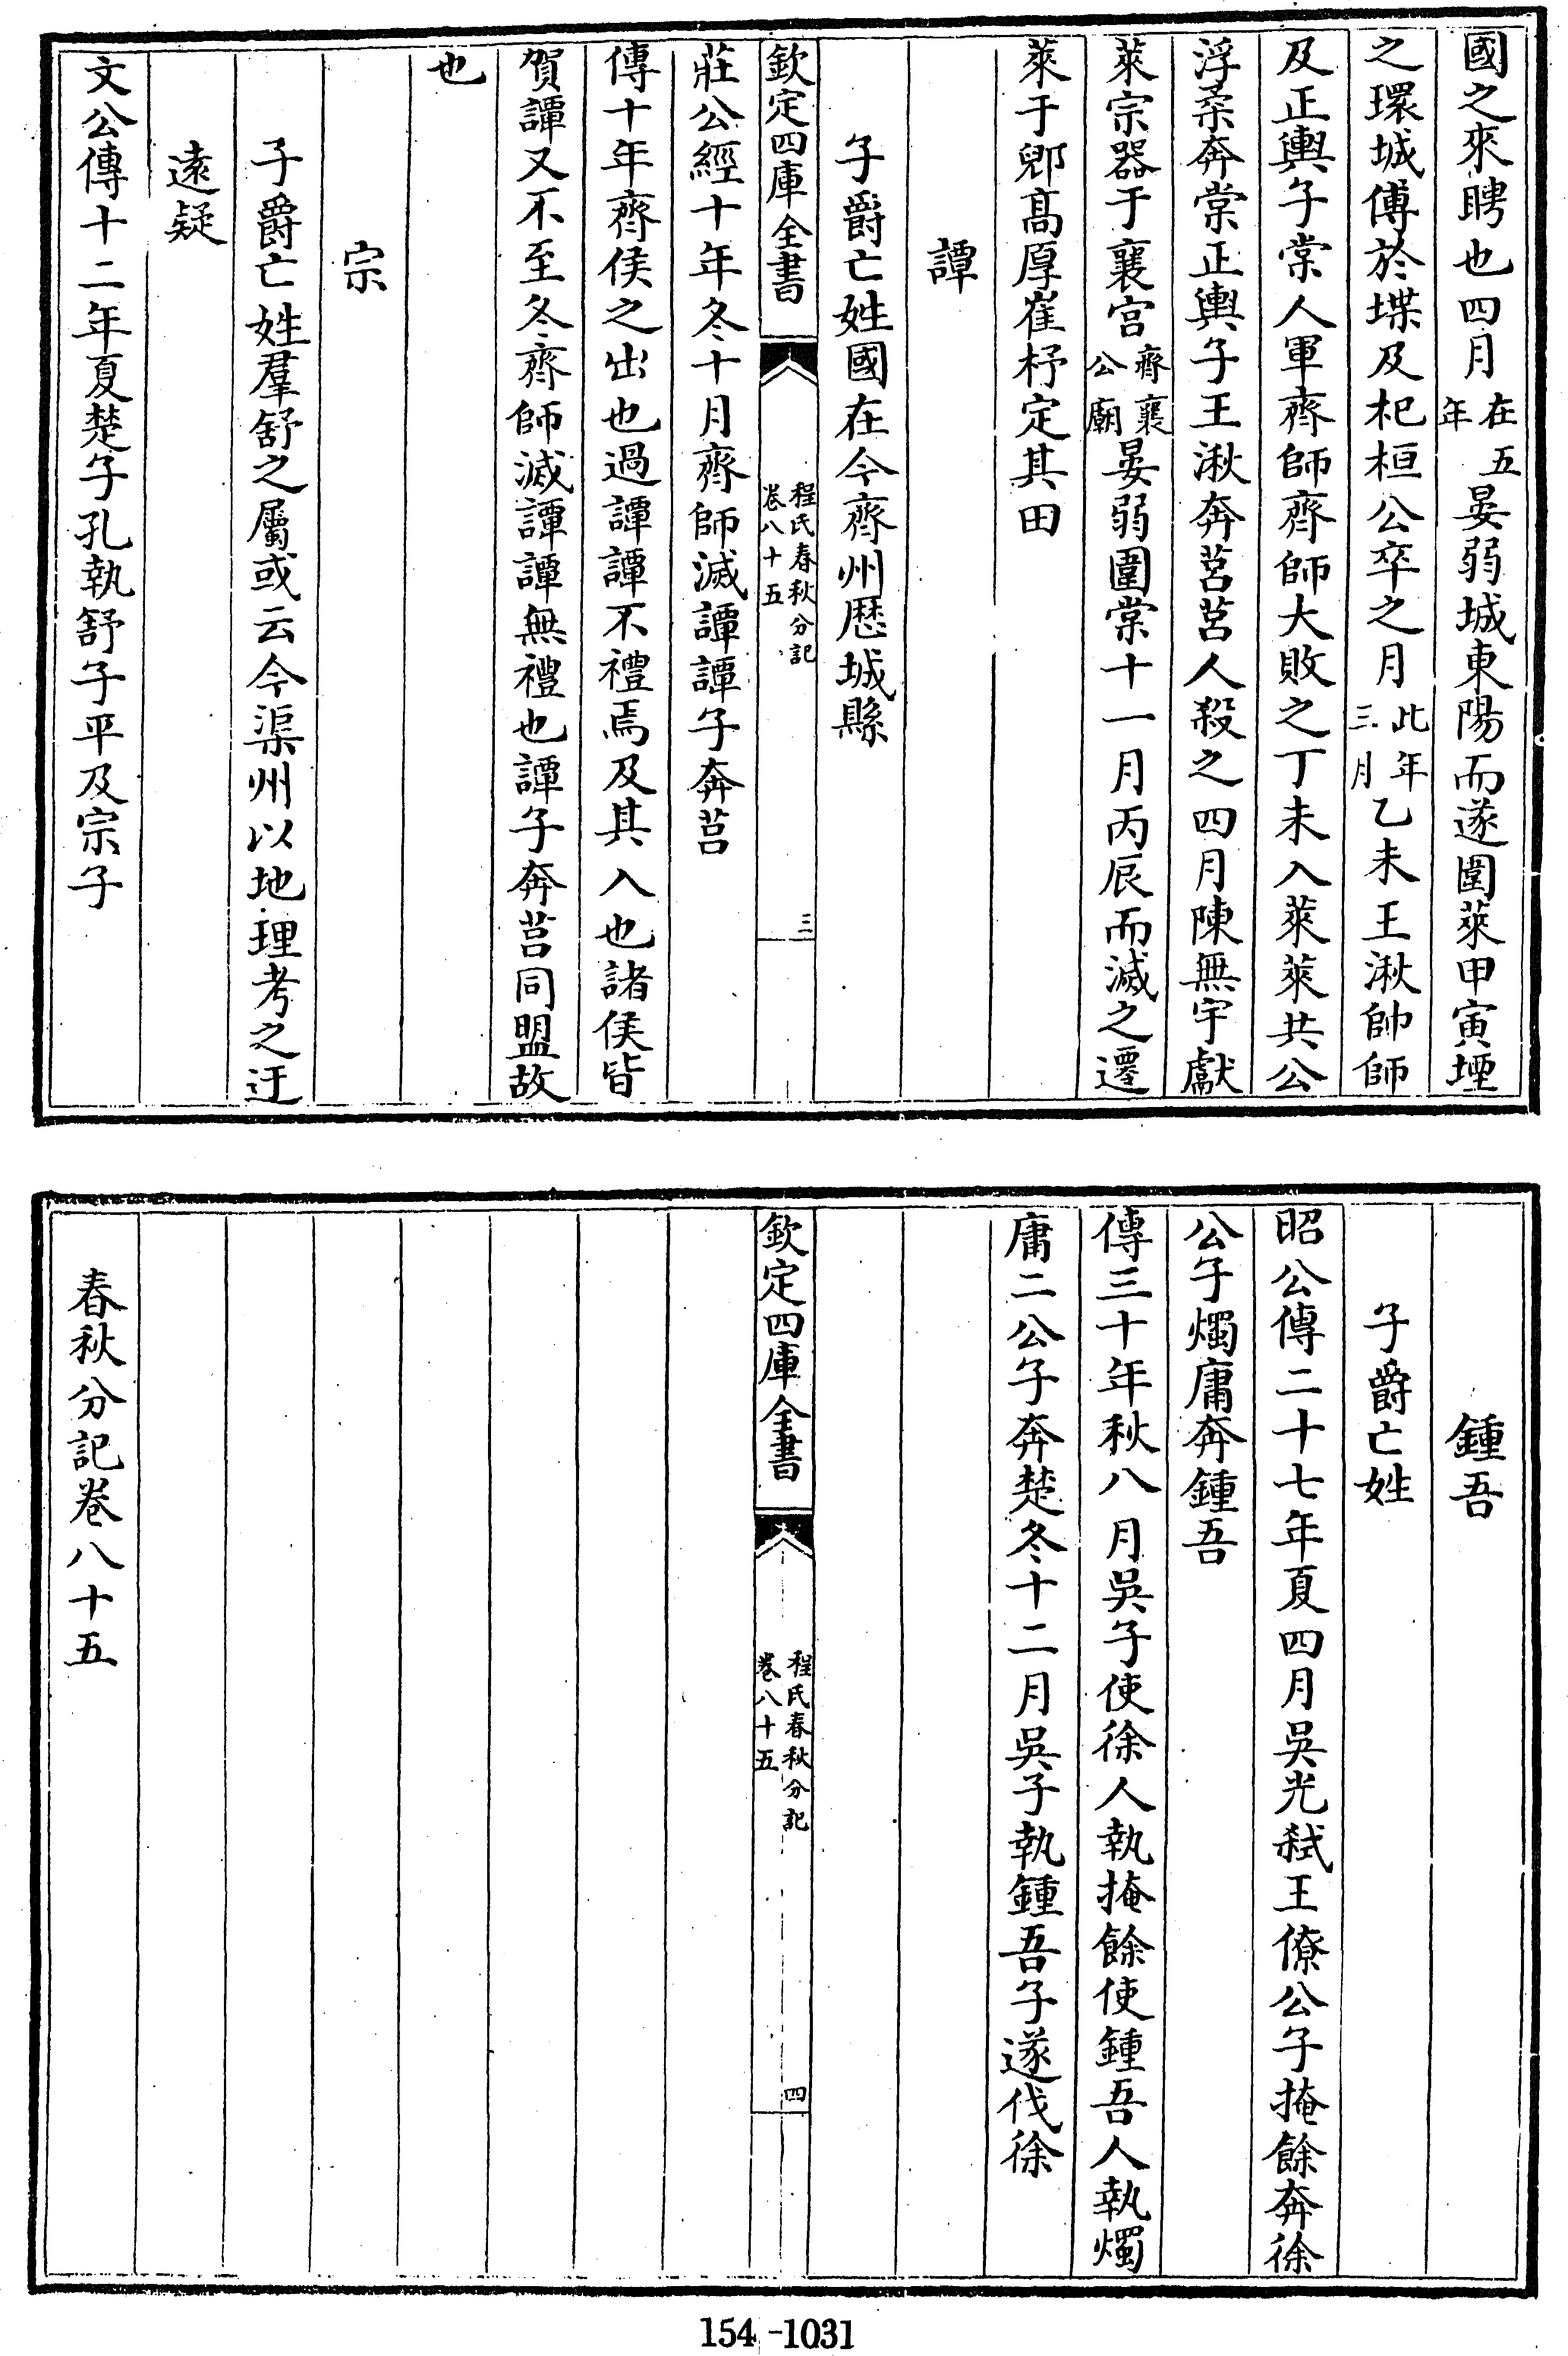 國之來聘也四月在五年晏弱城東陽而遂圍萊甲寅堙
之環城傅於堞及杞桓公卒之月此年三月乙未王湫帥師
及正輿子棠人軍齊師齊師大敗之丁未入萊萊共公
浮柔奔棠正輿子王湫奔莒莒人殺之四月陳無宇獻
萊宗器于襄宫齊襄公廟晏弱圍棠十一月丙辰而滅之遷
萊于郳髙厚崔杼定其田
譚
子爵亡姓國在今齊州厯城縣
欽定四庫全書
程氏春秋分記
卷八十五
三
莊公經十年冬十月齊師滅譚譚子奔莒
傳十年齊侯之出也過譚譚不禮焉及其入也諸侯皆
賀譚又不至冬齊師滅譚譚無禮也譚子奔莒同盟故
也
宗
子爵亡姓羣舒之屬或云今渠州以地理考之迂
遠疑
文公傳十二年夏楚子孔執舒子平及宗子
鍾吾
子爵亡姓
昭公傳二十七年夏四月吳光弑王僚公子掩餘奔徐
公子燭庸奔鍾吾
傳三十年秋八月吳子使徐人執掩餘使鍾吾人執燭
庸二公子奔楚冬十二月吳子執鍾吾子遂伐徐
欽定四庫全書
程氏春秋分記
卷八十五
四
春秋分記卷八十五
154-1031